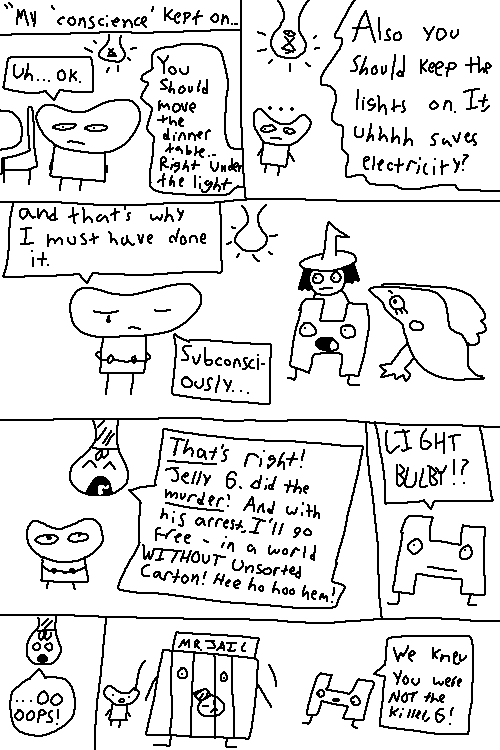 "My 'conscience' kept on...
Uh... OK.
You
Should
move
the
dinner
table...
Right under
the light
...
Also you
Should keep the
lights on. It,
uhhhh saves
electricity?
and that's why
I must have done
it.
Subconsci-
ously...
That's right!
Jelly G. did the
murder! And with
his arrest, I'll go
free - in a world
WITHOUT Unsorted
Carton! Hee ho hoo hem!
LIGHT
BULBY!?
...OO
OOPS!
MR JAIL
We knew
You were
NOT the
killer, G!